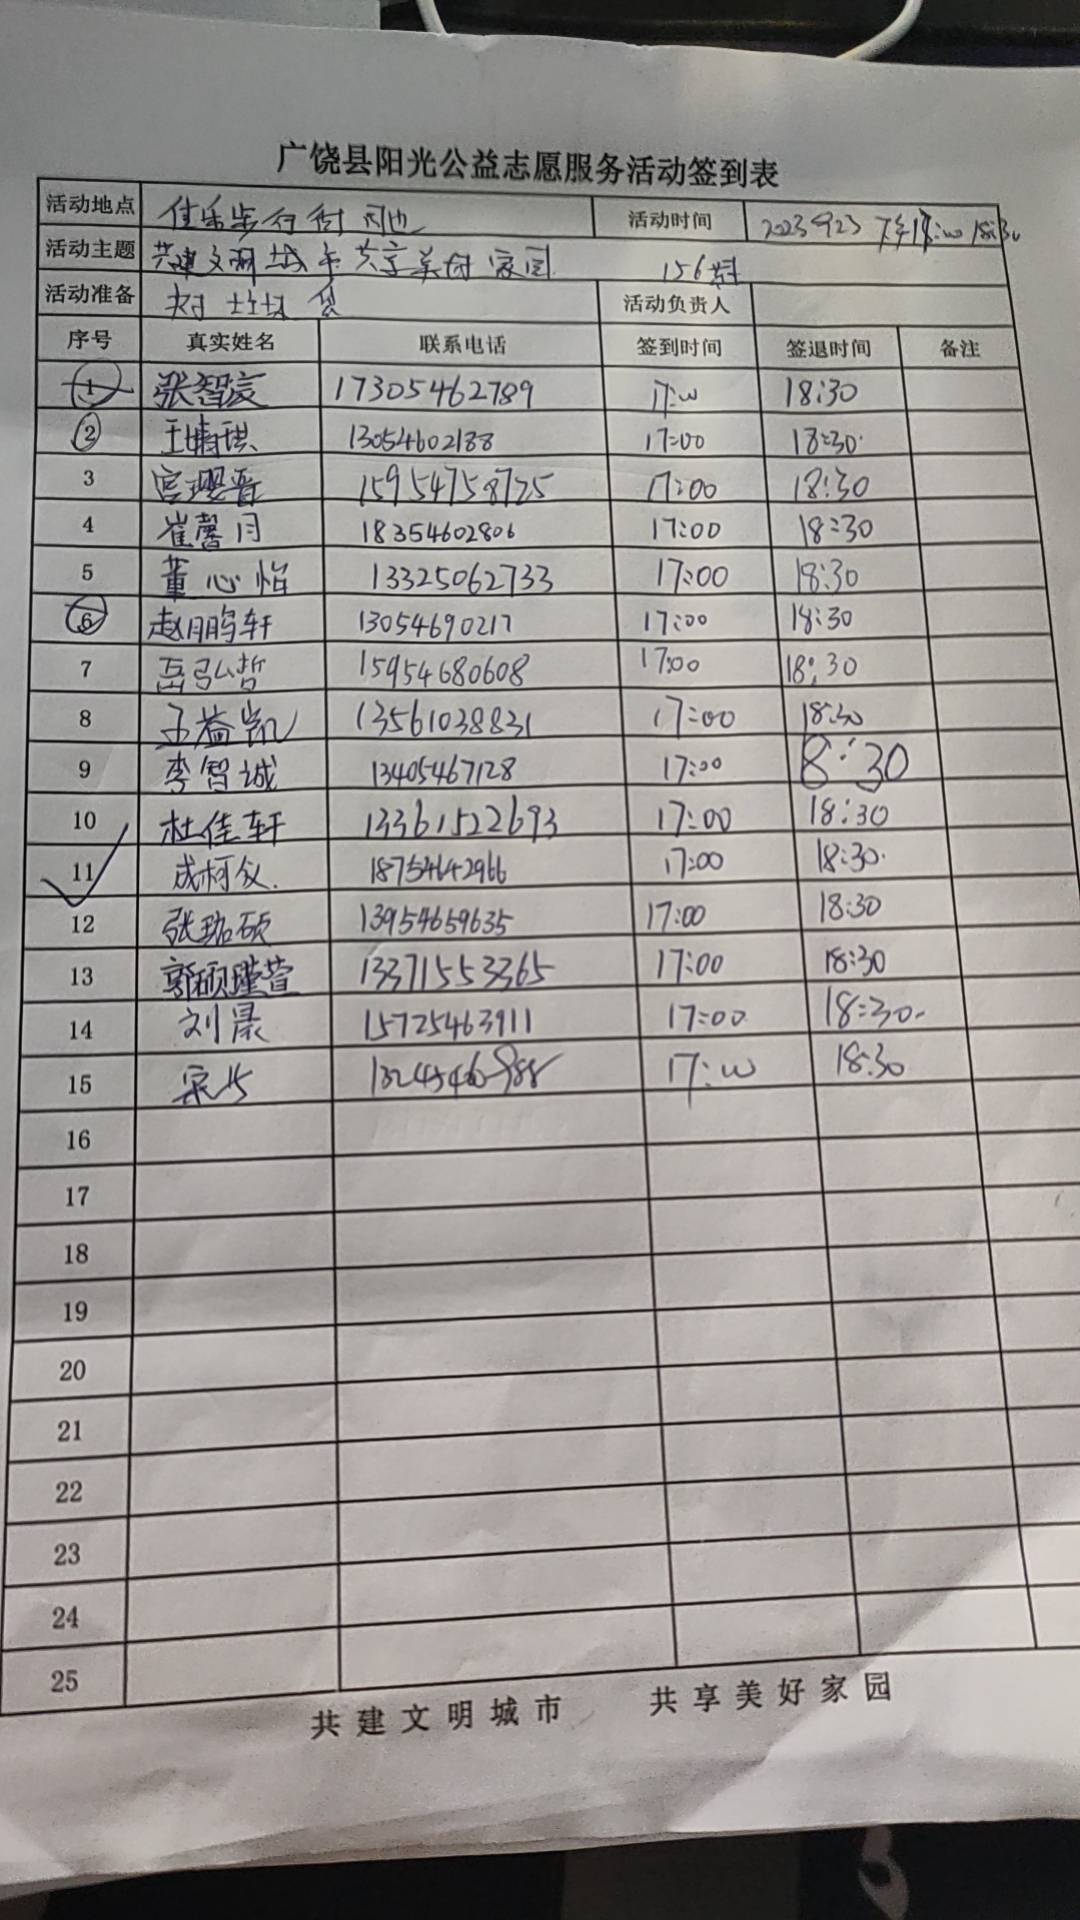 广饶县阳光公益志愿服务活动签到表
活动地点 佳乐步行街 活动时间 2023 9 23 18:30
活动主题 共建文明城市 共享美好家园 156期
活动准备 活动负责人
序号 真实姓名 联系电话 签到时间 签退时间 备注
1 张智 17305462789 17:00 18:30
2 王婧琪 13054602188 17:00 18:30
3 宫璎晋 15954758725 17:00 18:30
4 崔馨月 18354602806 17:00 18:30
5 董心怡 13325062733 17:00 18:30
6 赵鹏轩 13054690217 17:00 18:30
7 岳弘哲 15954680608 17:00 18:30
8 王益凯 13561038831 17:00 18:30
9 李智诚 13405467128 17:00 8:30
10 杜佳轩 13361522693 17:00 18:30
11 成柯仪 18754642966 17:00 18:30
12 张珈硕 13954659635 17:00 18:30
13 郭硕瑾萱 13371553365 17:00 18:30
14 刘晟 15725463911 17:00 18:30
15 17:00 18:30
16
17
18
19
20
21
22
23
24
25
共建文明城市 共享美好家园